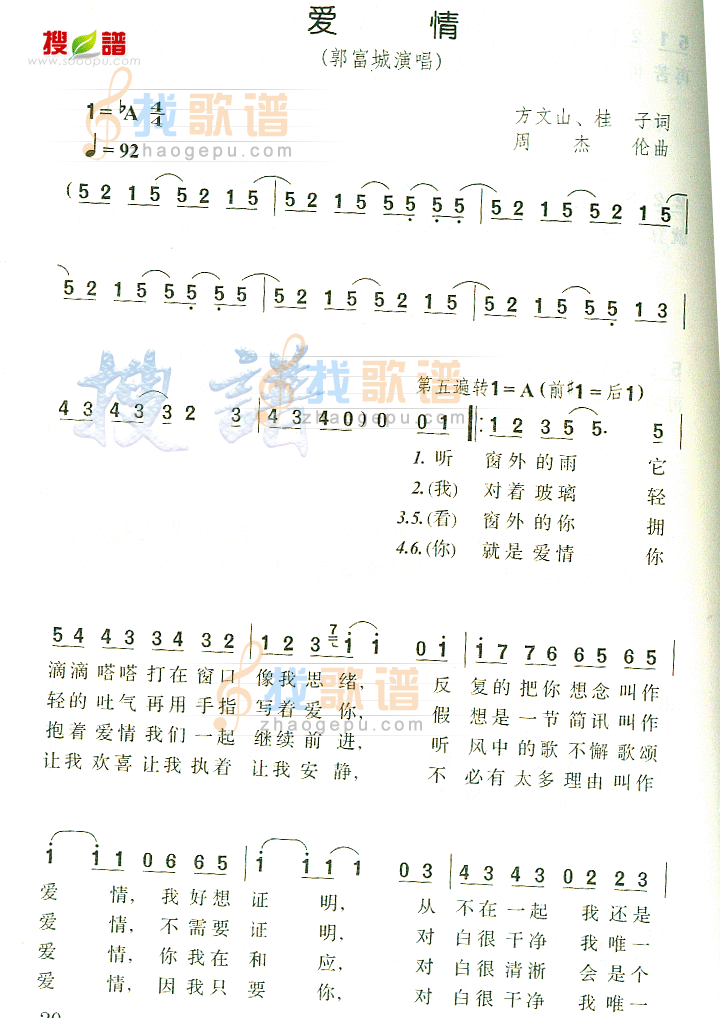 爱 情
搜谱
www.sooopu.com
(郭富城演唱)
1=♭A 4/4
♩=92
方文山、桂 子词
周 杰 伦曲
找歌谱
zhaogepu.com
(5 2 1 5 5 2 1 5 | 5 2 1 5 5 5 5 5 | 5 2 1 5 5 2 1 5 |
5 2 1 5 5 5 5 5 | 5 2 1 5 5 2 1 5 | 5 2 1 5 5 5 1 3 |
搜谱
找歌谱
zhaogepu.com
第五遍转1=A(前♯1=后1)
4 3 4 3 3 2 3 | 4 3 4 0 0) 0 1 ‖: 1 2 3 5 5· 5
1. 听 窗外的雨 它
2.(我) 对着玻璃 轻
3.5.(看) 窗外的你 拥
4.6.(你) 就是爱情 你
5 4 4 3 3 4 3 2 | 1 2 3 7 i i 0 i | i 7 7 6 6 5 6 5 |
滴滴嗒嗒打在窗口 像我思绪, 反 复的把你想念叫作
轻的吐气再用手指 写着爱你, 假 想是一节简讯叫作
抱着爱情我们一起 继续前进, 听 风中的歌不懈歌颂
让我欢喜让我执着 让我安静, 不 必有太多理由叫作
找歌谱
zhaogepu.com
i i 1 0 6 6 5 | i i 1 1 0 3 | 4 3 4 3 0 2 2 3 |
爱 情, 我好想 证 明, 从 不在一起 我还是
爱 情, 不需要 证 明, 对 白很干净 我唯一
爱 情, 你我在 和 应, 对 白很清淅 会是个
爱 情, 因我只 要 你, 对 白很干净 我唯一